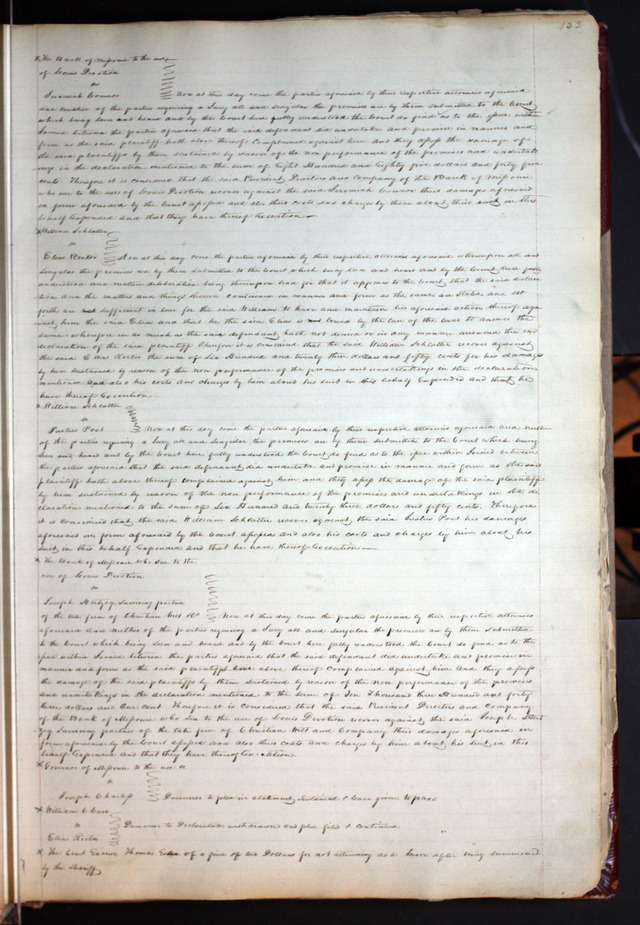 152
The Bank of Missouri to the use
of Louis Devotion
vs
Jeremiah Connor Now at this day come the parties aforesaid by their respective attornies aforesaid
and neither of the parties requiring a Jury all and singular the premises are by them submitted to the Court
which being seen and heard and by the Court here fully understood the Court do find as to the issue within
Joined between the parties aforesaid that the said defendant did undertake and promise in manner and
form as the said plaintiffs hath above thereof Complained against him and they assess the damage of
the said plaintiffs by them sustained by reason of the non performance of the promises and undertak
ings in the declaration mentioned to the sum of Eight Hundred and Eighty five dollars and forty five
cents. Therefore it is considered that the said President Directors and Company of the Bank of Missouri
who sue to the use of Louis Devotion recover against the said Jeremiah Connor their damages aforesaid
in form aforesaid by the Court assessed and also their costs and charges by them about their suit in this
behalf Expended and that they have thereof Execution
William Schlatter
vs
Elias Rector Now at this day come the parties aforesaid by their respective attornies aforesaid whereupon all and
singular the premises are by them submitted to the Court which being seen and heard and by the Court here fully
understood and mature deliberation being thereupon had for that it appears to the Court, that the said declara
tion and the matters and things therein contained in manner and form as the same are stated and set
forth are sufficient in law for the said William to have and maintain his aforesaid action thereof aga
inst him the said Elias and that he the said Elias is bound by the law of the land to answer the
same wherefore in as much as the said defendant hath not denied or in any manner answered the said
declaration of the said plaintiff Therefore it is considered that the said William Schlatter recover against
the said Elias Rector the sum of Six Hundred and twenty three dollars and fifty cents for his damages
by him sustained by reason of the non performance of the promises and undertakings in the declaration
mentioned and also his costs and charges by him about his suit in this behalf Expended and that he
have thereof Execution
William Schlatter
vs
Justus Post Now at this day come the parties aforesaid by their respective attornies aforesaid and neither
of the parties requiring a Jury all and singular the premises are by them submitted to the Court which being
seen and heard and by the Court here fully understood the Court do find as to the issue within Joined between
the parties aforesaid that the said defendant did undertake and promise in manner and form as the said
plaintiff hath above thereof complained against him and they assess the damage of the said plaintiff
by him sustained by reason of the non performance of the promises and undertakings in the de
claration mentioned to the sum of Six Hundred and twenty three dollars and fifty cents. Therefore
it is considered that the said William Schlatter recover against the said Justus Post his damages
aforesaid in form aforesaid by the Court assessed and also his costs and charges by him about his
suit in this behalf Expended and that he have thereof Execution
The Bank of Missouri who sue to the
use of Louis Devotion
vs
Joseph Hertzog surviving partner
of the late firm of Christian Wilt &Co Now at this day come the parties aforesaid by their respective attornies
aforesaid and neither of the parties requiring a Jury all and singular the premises are by them submitted
to the Court which being seen and heard and by the Court here fully understood the Court do find as to the
issue within Joined between the parties aforesaid that the said defendant did undertake and promise in
manner and form as the said plaintiffs have above thereof Complained against him And they assess
the damage of the said plaintiffs by them sustained by reason of the non performance of the promises
and undertakings in the declaration mentioned to the sum of Ten Thousand three Hundred and forty
three dollars and One cent. Therefore it is considered that the said President Directors and Company
of the Bank of Missouri who sue to the use of Louis Devotion recover against the said Joseph Hert
zog Surviving partner of the late firm of Christian Wilt and Company their damages aforesaid in
form aforesaid by the Court assessed and also their costs and charges by him about their suit in this
behalf Expended and that they have thereof Execution
Governor of Missouri to the use &c
vs
Joseph Charless Demurrer to plea in abatement sustained & leave given to plead
William C Carr
vs
Elias Rector Demurrer to Declaration withdrawn and plea filed & continued
The Court Excuses Thomas of a fine of ten Dollars for not attending as a Juror after being summoned
by the Sheriff